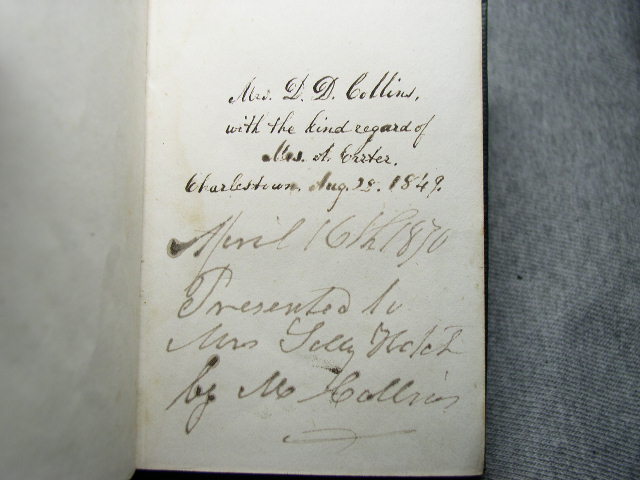 Mrs. D. D. Collins,
with the kind regard of
Mrs. A.
Charlestown. Aug. 28. 1849.
April 16th 1870
Presented to
Mrs Hatch
by M Collins